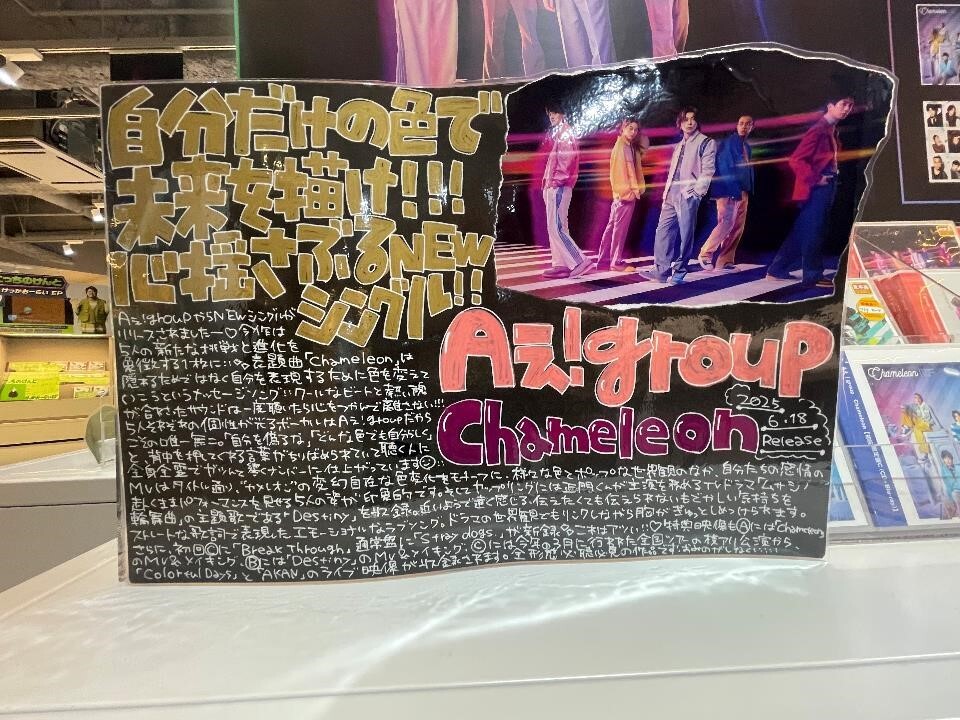 自分だけの色で
未来を描け!!!
心揺さぶるNEW
シングル!!
Aぇ! group
Chameleon
2025
6.18
Release
Aぇ! groupからNEWシングルが
リリースされました―♡今作は
5人の新たな挑戦と進化を
表題曲「Chameleon」は
隠れるためではなく自分を表現するために色を変えて
いこうというメッセージソング!!クールなビートと
が合わさったサウンドは一度聴いたら心をつかんで離さない!!!
5人それぞれの個性が光るボーカルはAぇ! groupだから
こその唯一無二。「自分を偽るな」「どんな色でも自分らしく」
と、背中を押してくれる言葉がちりばめられていて聴く人に
全身全霊でガツンと響くナンバーに仕上がっています
MVはタイトル通り、"カメレオン"の変幻自在な色変化をモチーフに、様々な色とポップな世界観のなか、自分たちの感情の
赴くままパフォーマンスを見せる5人の姿が印象的です。そしてカップリングには正門くんが主演を務めるTVドラマ「ムサシノ
輪舞曲」の主題歌である「Destiny」を収録。近いようで遠く感じる、伝えたくても伝えられないもどかしい気持ちを
ストレートな歌詞で表現したエモーショナルなラブソング。ドラマの世界観ともリンクしながら胸がぎゅっとしめつけられます。
さらに、初回Ⓒに「Break Through」、通常盤に「Stray dogs」が新録。二れはアツい!!!♡特典映像もⒶには「Chameleon」
のMV&メイキング、Ⓑには「Destiny」のMV&メイキング、Ⓒには今年の3月に行われた全国ツアーの横アリ公演から
「Colorful Days」と「AKAN」のライブ映像が収録されてます。全形態必聴必見の作品です
っちのけんと
けっかおーらい EP
Chameleon
Chameleon